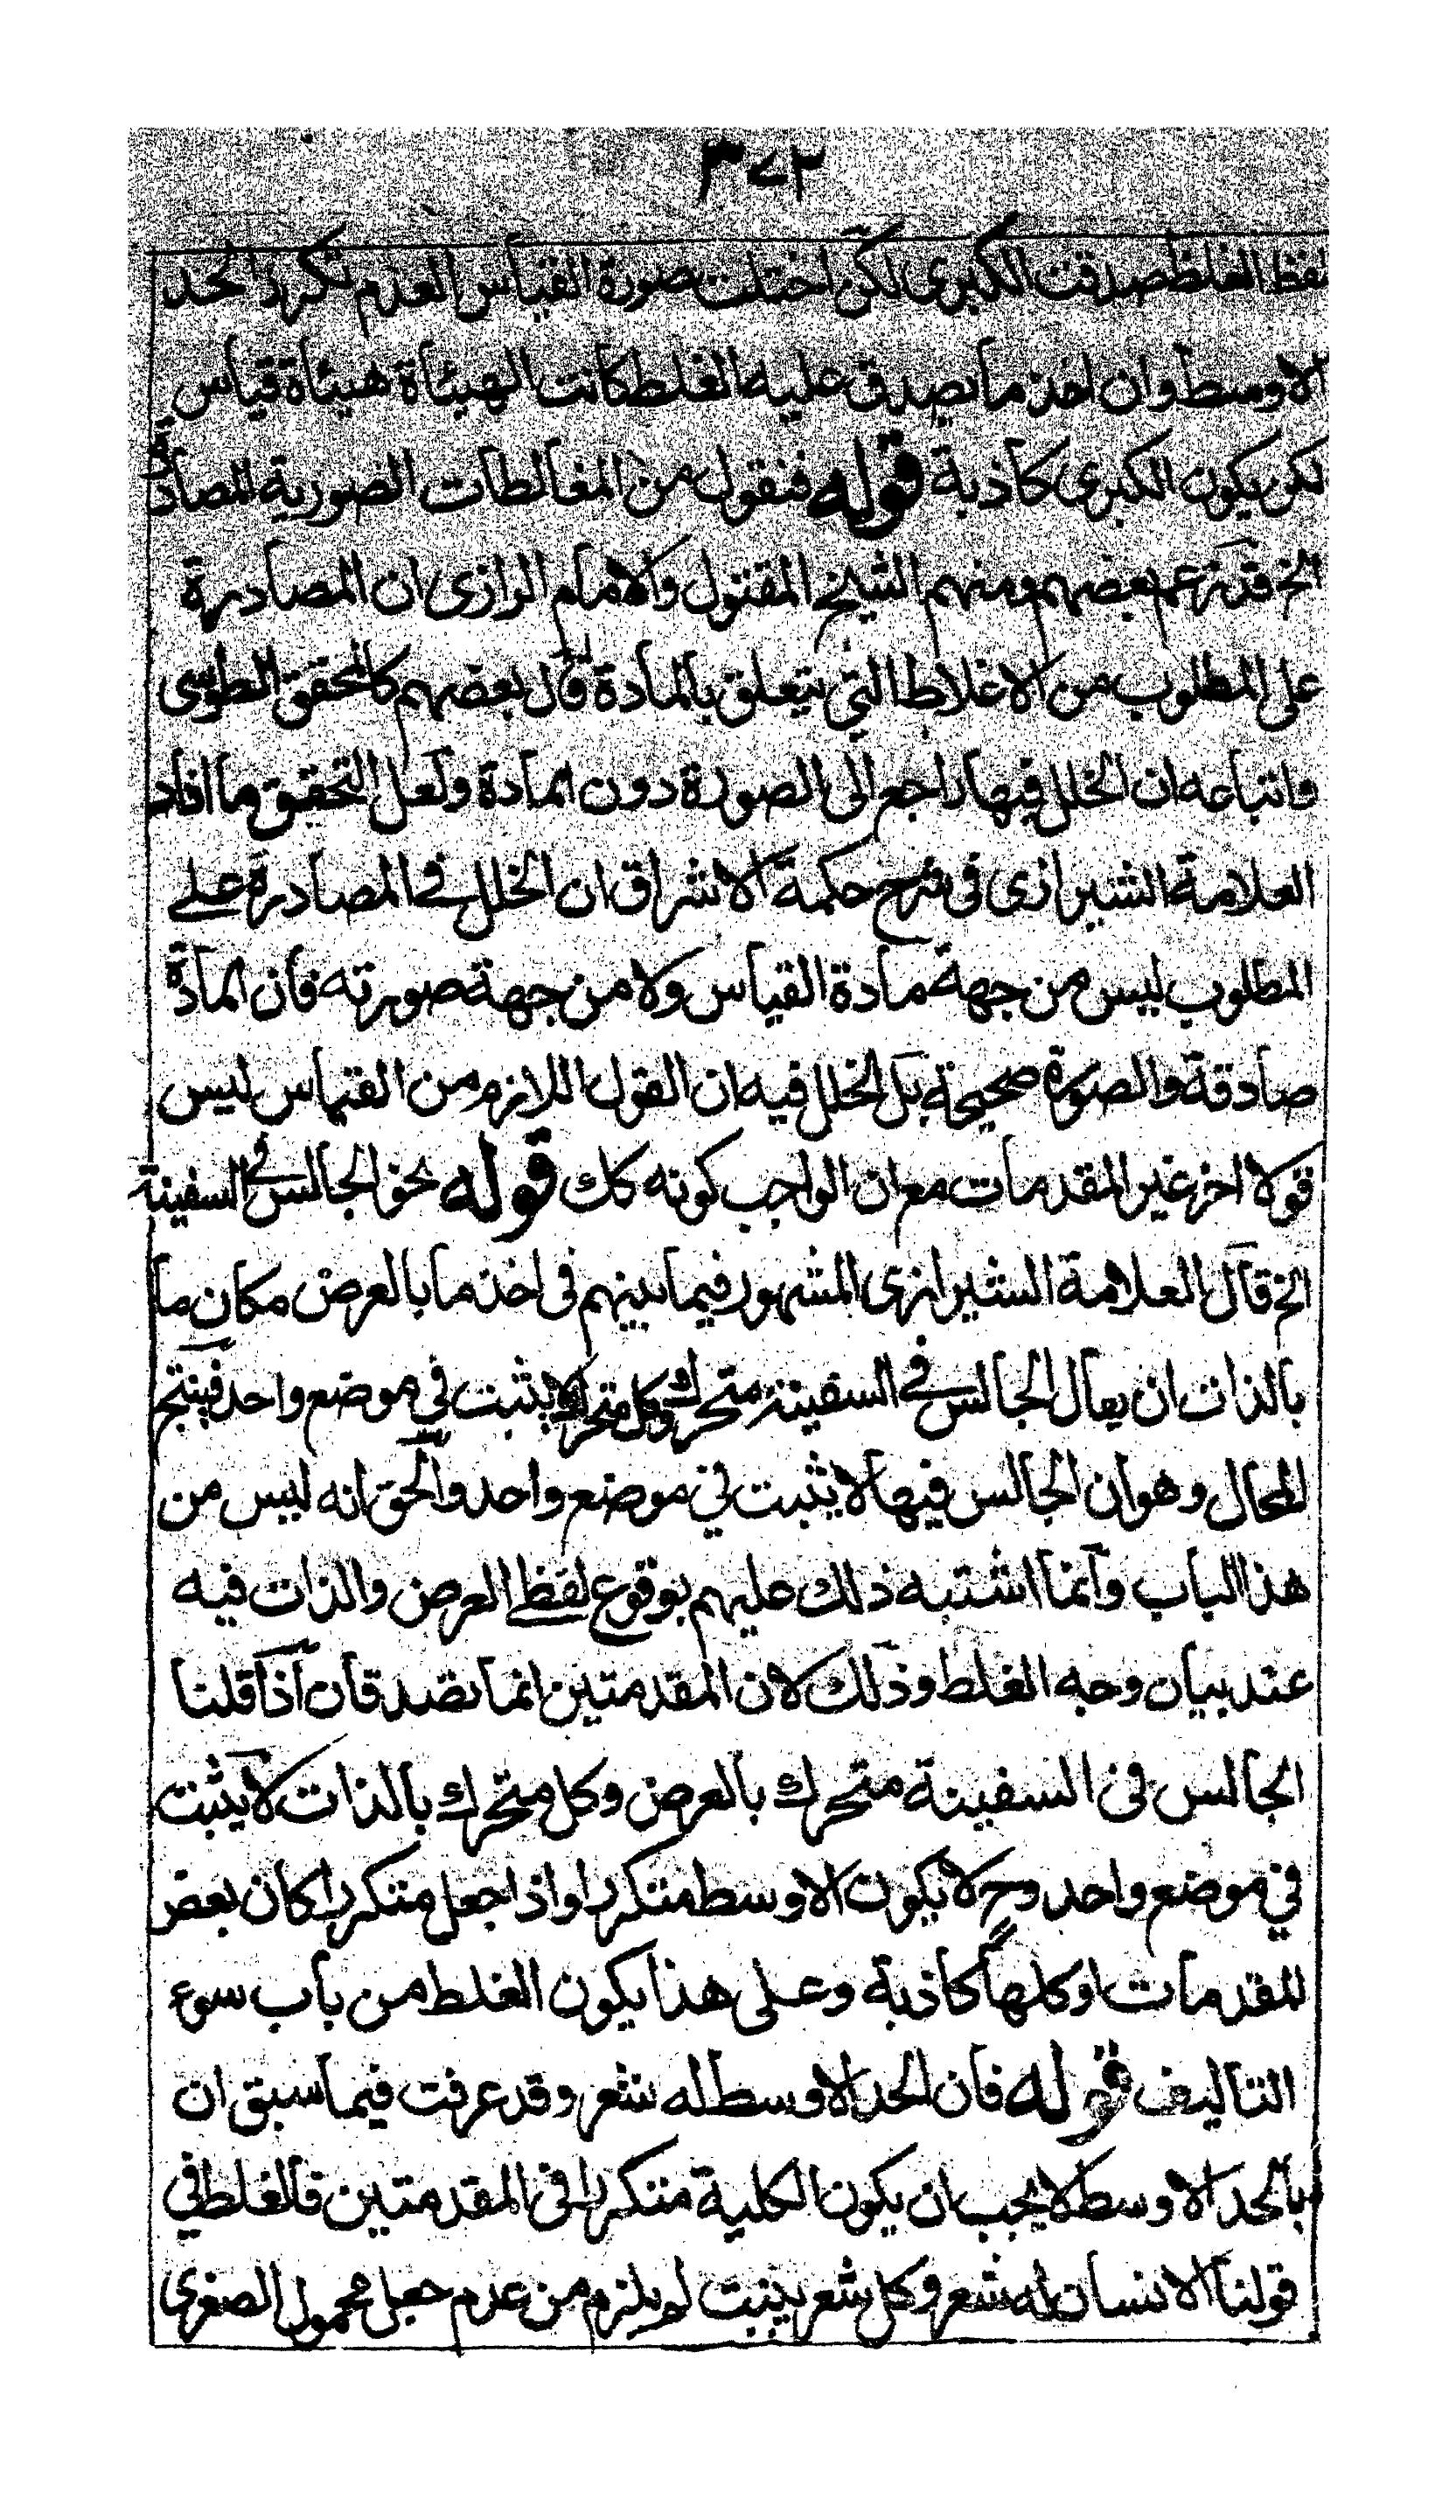 ٣٧٢
لفظ الغلط صدقت الكبرى لكن اختلت صورة القياس لعدم تكرر الحد
الاوسط وان اخذ ما يصدق عليه الغلط كانت الهيئاة هيئاة قياس
لكن يكون الكبرى كاذبة قوله فنقول من المغالطات الصورية المصادرة
الخ قد زعم بعضهم ومنهم الشيخ المقتول والامام الرازى ان المصادرة
على المطلوب من الاغلاط التى يتعلق بالمادة وقال بعضهم كالمحقق الطوسى
واتباعه ان الخلل فيها راجع الى الصورة دون المادة ولعل التحقيق ما افاد
العلامة الشيرازى فى شرح حكمة الاشراق ان الخلل فى المصادرة على
المطلوب ليس من جهة مادة القياس ولا من جهة صورته فان المادة
صادقة والصورة صحيحة بل الخلل فيه ان القول اللازم من القياس ليس
قولا اخر غير المقدمات مع ان الواجب كونه كك قوله نحو الجالس فى السفينة
الخ قال العلامة الشيرازى المشهور فيما بينهم فى اخذ ما بالعرض مكان ما
بالذات ان يقال الجالس فى السفينة متحرك وكل متحرك لا يثبت في موضع واحد فينتج
المحال وهو ان الجالس فيها لا يثبت في موضع واحد والحق انه ليس من
هذا الباب وانما اشتبه ذلك عليهم بوقوع لفظ العرض والذات فيه
عند بيان وجه الغلط وذلك لان المقدمتين انما تصدقان اذا قلنا
الجالس فى السفينة متحرك بالعرض وكل متحرك بالذات لا يثبت
في موضع واحد وح لا يكون الاوسط متكررا واذا جعل متكررا كان بعض
المقدمات او كلها كاذبة وعلى هذا يكون الغلط من باب سوء
التاليف قوله فان الحد الاوسط له شعر وقد عرفت فيما سبق ان
بالحد الاوسط لا يجب ان يكون الكلية متكررا فى المقدمتين فالغلط في
قولنا الانسان له شعر وكل شعر ينبت لم يلزم من عدم جعل محمول الصغرى